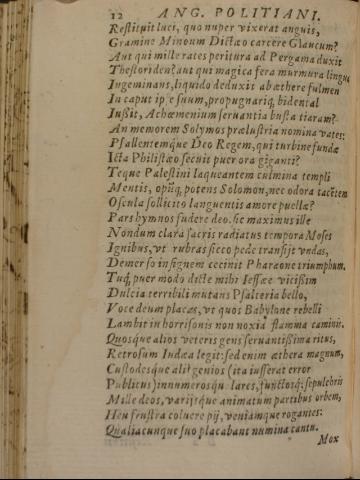 12 ANG. POLITIANI.
Restituit luci, quo nuper vixerat anguis,
Gramine Minoum Dictæo carcere Glaucum?
Aut qui mille rates peritura ad Pergama duxit
Thestoriden? aut qui magica fera murmura lingua
Ingeminans, liquido deduxit ab æthere fulmen
In caput ipse suum, propugnariq́; bidental
Iußit, Achæmenium seruantia busta tiaram?
An memorem Solymos prælustria nomina vates:
Psallentemque Deo Regem, qui turbine fundæ
Icta Philistæo secuit puer ora giganti?
Teque Palestini laqueantem culmina templi
Mentis, opúq; potens Solomon, nec odora tacētem
Oscula sollicito languentis amore puellæ?
Pars hymnos fudere deo. sic maximus ille
Nondum clara sacris radiatus tempora Moses
Ignibus, vt rubras sicco pede transijt vndas,
Demerso insignem cecinit Pharaone triumphum.
Tuq́; puer modo dicte mihi Iessææ vicißim
Dulcia terribili mutans Psalteria bello,
Voce deum placas, vt quos Babylone rebelli
Lambit in horrisonis non noxia flamma caminis.
Quosque alios veteris gens seruantißima ritus,
Retrorsum Iudæa legit: sed enim æthera magnum,
Custodesque alij genios (ita iusserat error
Publicus) innumerosqu lares, functorq́; sepulchris
Mille deos, varijsque animatum partibus orbem,
Heu frustra coluere pij, veniamque rogantes:
Qualiacunque suo placabant numina cantu.
Mox